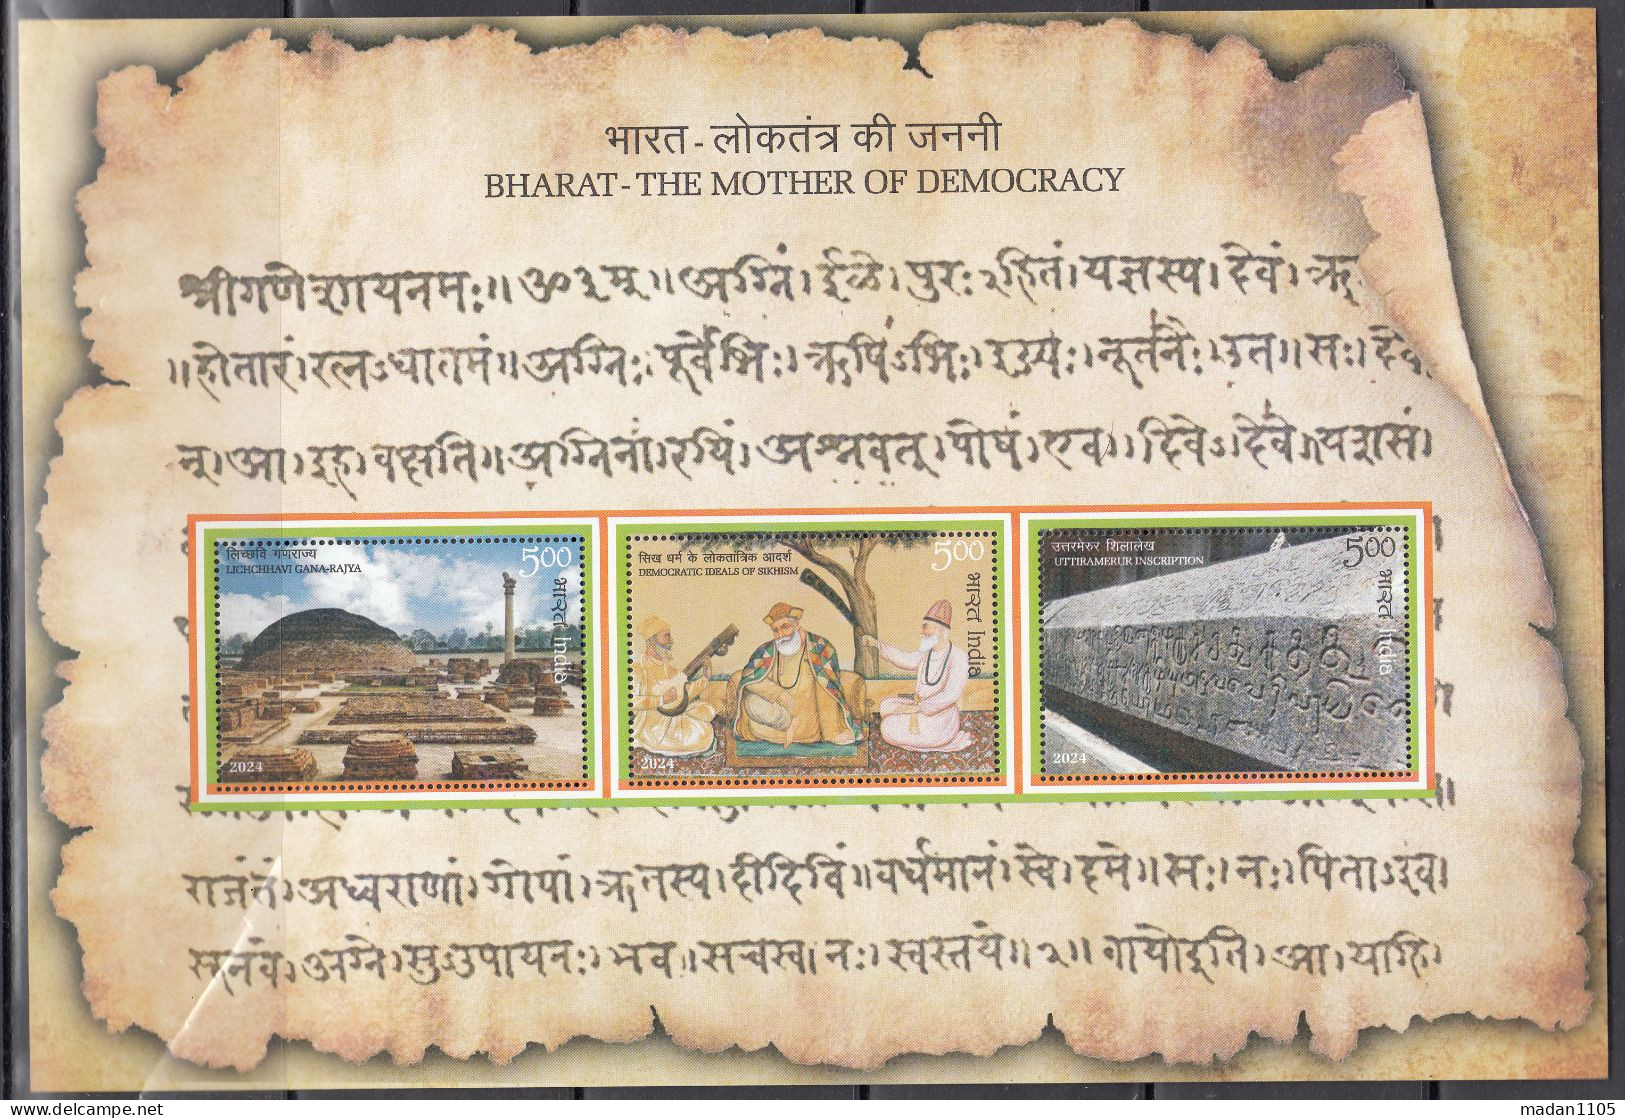 भारत - लोकतंत्र की जननी
BHARAT - THE MOTHER OF DEMOCRACY
श्रीगणेशायनमः॥ॐ३म्॥अग्निं।ईळे।पुरः२हितं।यज्ञस्य।देवं।ऋ
॥होतारं।रत्नऽधातमं॥अग्निः।पूर्वेभिः।ऋषिऽभिः।ईड्यः।नूतनैः।उत॥सः।देवा
न्।आ।इह।वक्षति॥अग्निना।रयिं।अश्नवत्।पोषं।एव।दिवेऽदिवे॥यशसं
लिच्छवि गणराज्य
LICHCHHAVI GANA-RAJYA
5.00
भारत India
2024
सिख धर्म के लोकतांत्रिक आदर्श
DEMOCRATIC IDEALS OF SIKHISM
5.00
भारत India
2024
उत्तरमेरुर शिलालेख
UTTIRAMERUR INSCRIPTION
5.00
भारत India
2024
राजंतं।अध्वराणां।गोपां।ऋतस्य।दीदिविं॥वर्धमानं।स्वे।दमे॥सः।नः।पिताऽइव।
सूनवे।अग्ने।सुऽउपायनः।भव॥सचस्व।नः।स्वस्तये॥२॥वायो।आ।याहि।
delcampe.net
madan1105